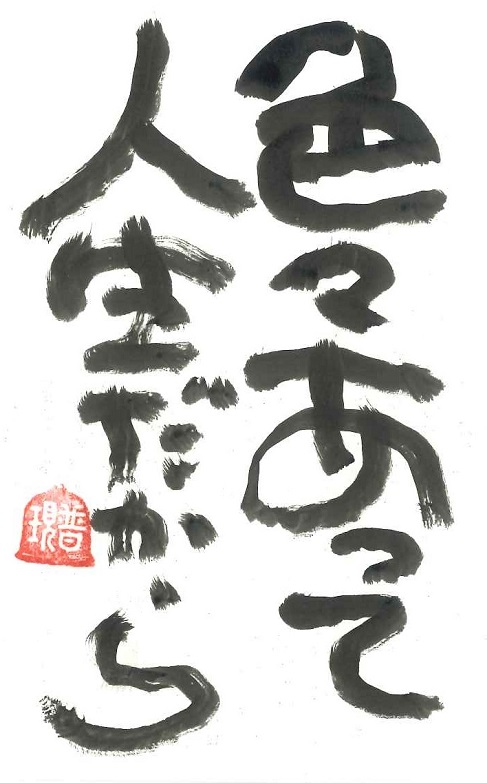 色々あって
人生だから
普現